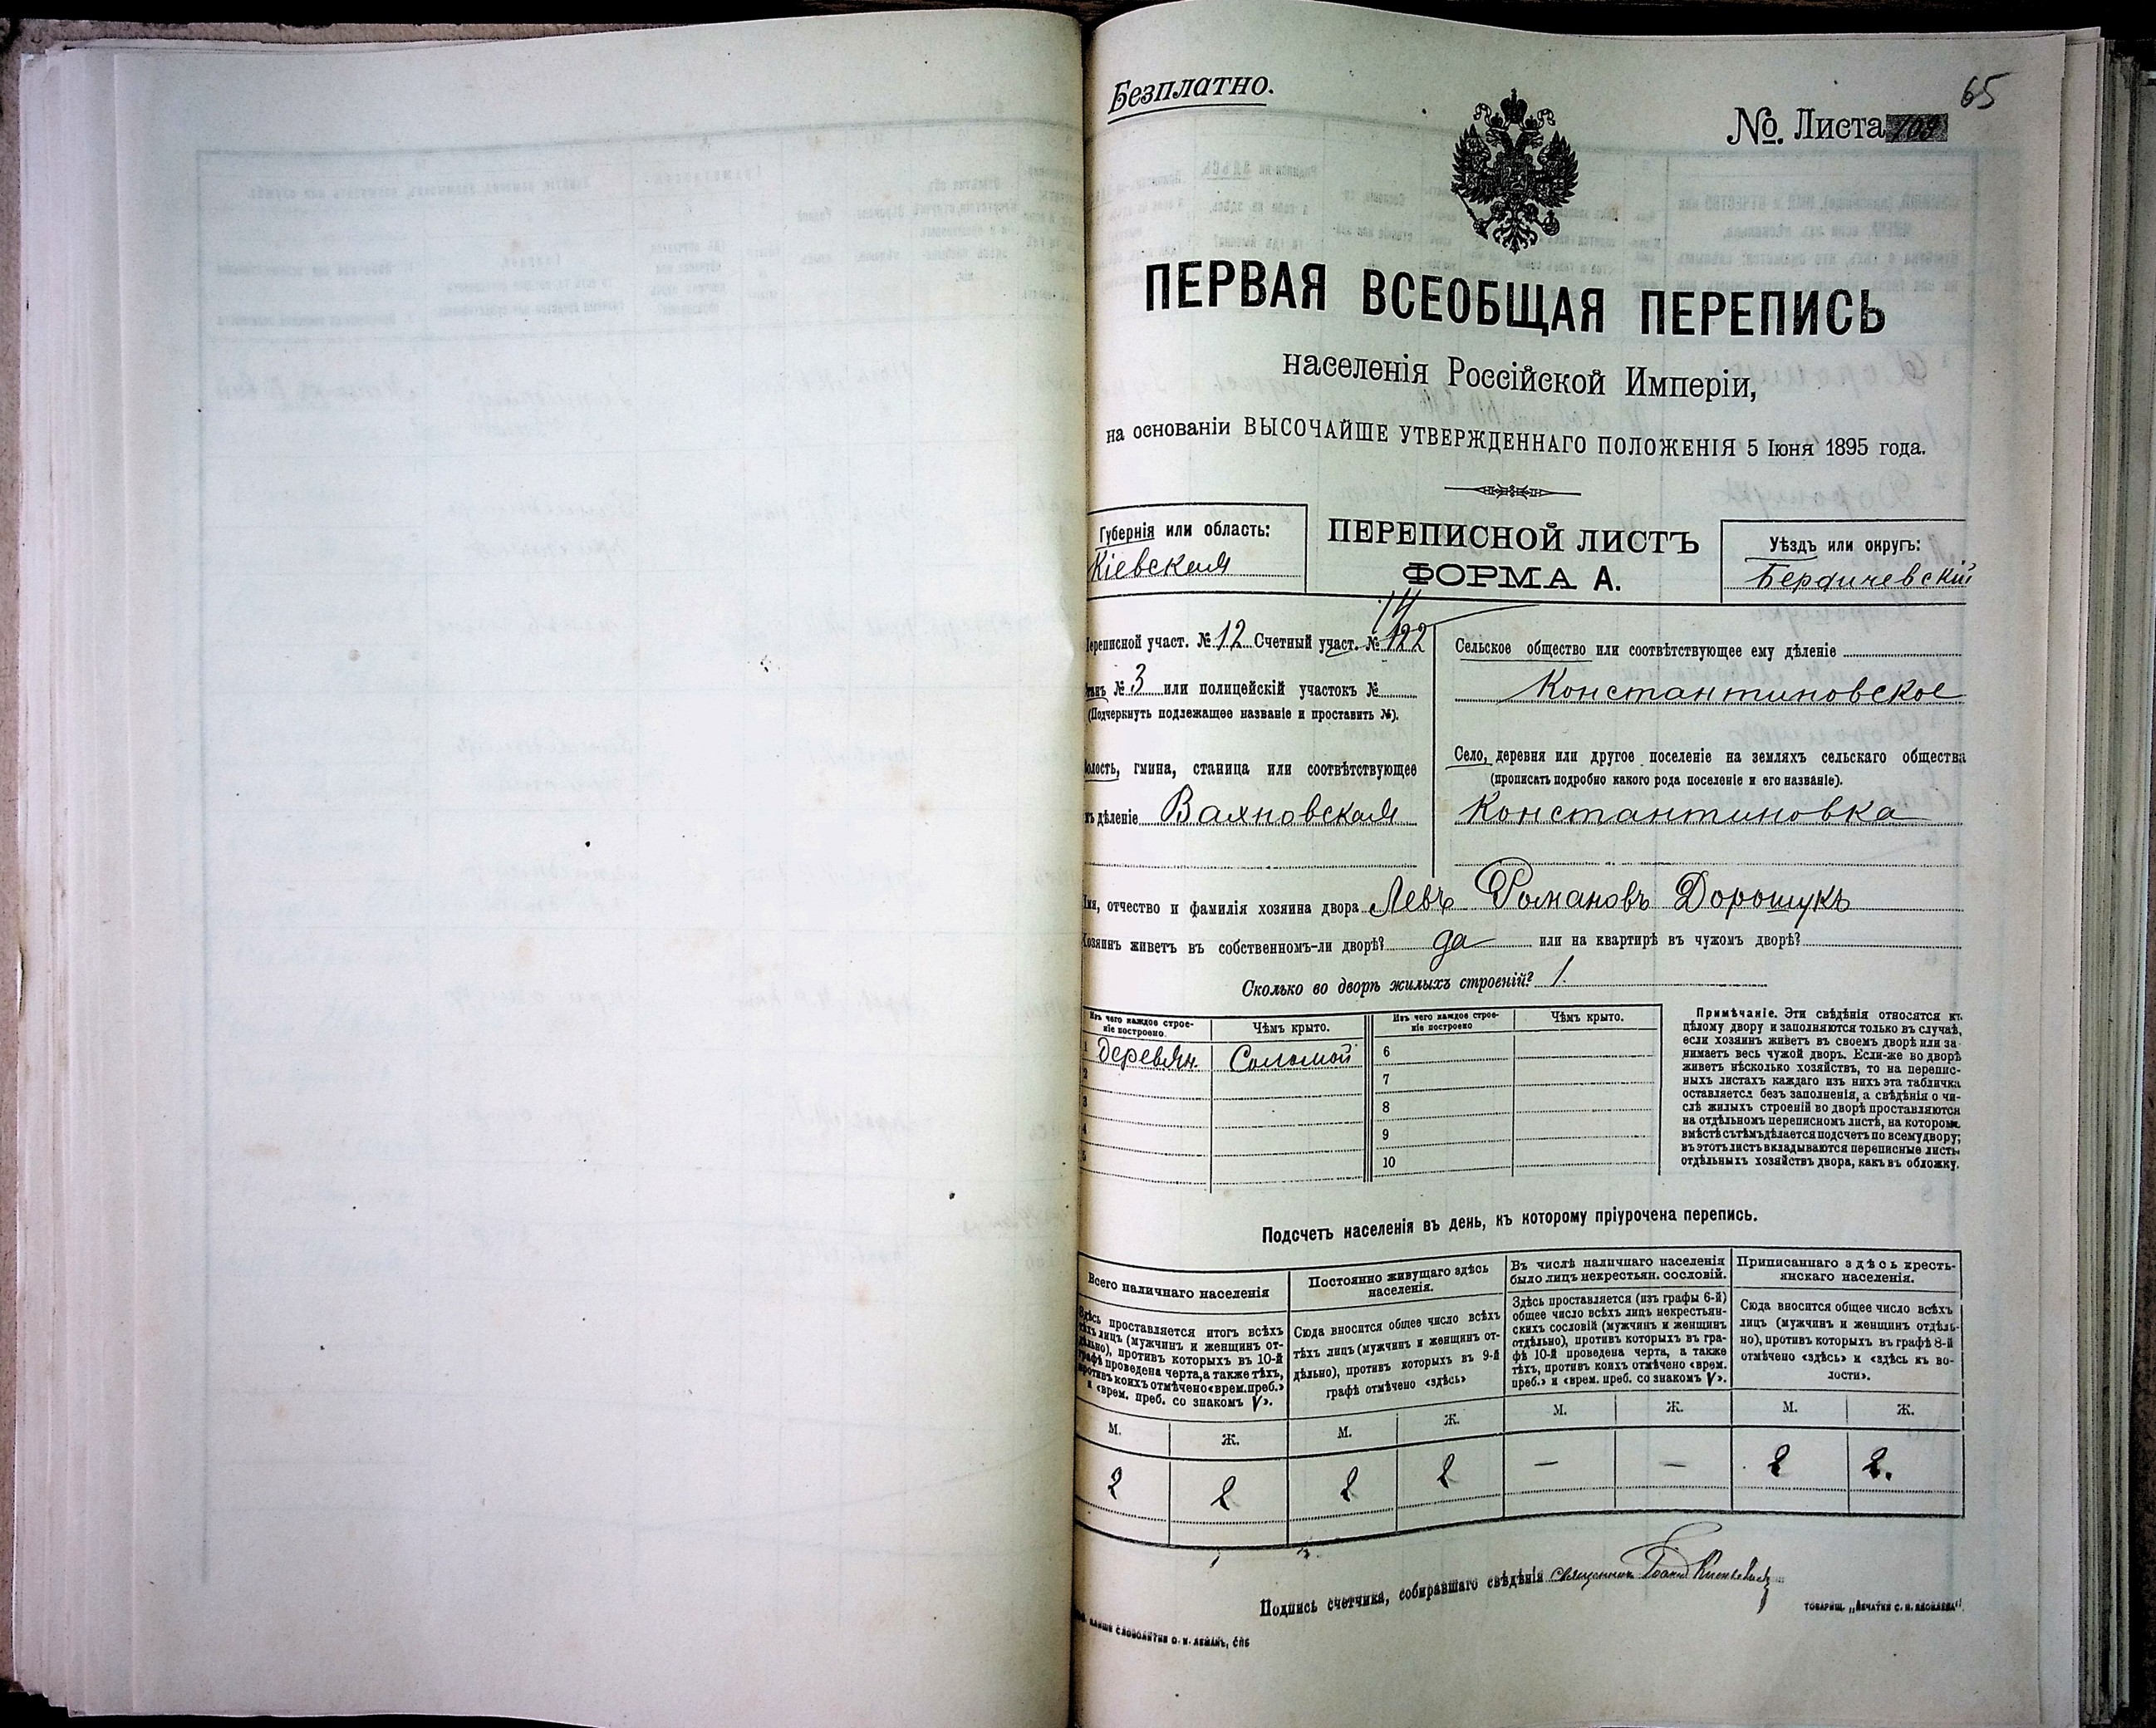 Безплатно.
65
№ Листа 103
ПЕРВАЯ ВСЕОБЩАЯ ПЕРЕПИСЬ
населенія Россійской Имперіи,
на основаніи ВЫСОЧАЙШЕ УТВЕРЖДЕННАГО ПОЛОЖЕНІЯ 5 Іюня 1895 года.
Губернія или область:
Кіевская
ПЕРЕПИСНОЙ ЛИСТЪ
ФОРМА А.
Уѣздъ или округъ:
Бердичевскій
14
Переписной участ. № 12 Счетный участ. № 122
Станъ № 3 или полицейскій участокъ №
(Подчеркнуть подлежащее названіе и проставить №).
Волость, гмина, станица или соотвѣтствующее
имъ дѣленіе Вахновская
Сельское общество или соотвѣтствующее ему дѣленіе
Константиновское
Село, деревня или другое поселеніе на земляхъ сельскаго общества
(прописать подробно какого рода поселеніе и его названіе).
Константиновка
Имя, отчество и фамилія хозяина двора Левъ Романовъ Дорошукъ
Хозяинъ живетъ въ собственномъ-ли дворѣ? да или на квартирѣ въ чужомъ дворѣ?
Сколько во дворѣ жилыхъ строеній? 1.
Изъ чего каждое строе-
ніе построено.
Чѣмъ крыто.
Изъ чего каждое строе-
ніе построено
Чѣмъ крыто.
1 деревян. Соломой 6
2 7
3 8
4 9
5 10
Примѣчаніе. Эти свѣдѣнія относятся къ
цѣлому двору и заполняются только въ случаѣ,
если хозяинъ живетъ въ своемъ дворѣ или за-
нимаетъ весь чужой дворъ. Если-же во дворѣ
живетъ нѣсколько хозяйствъ, то на перепис-
ныхъ листахъ каждаго изъ нихъ эта табличка
оставляется безъ заполненія, а свѣдѣнія о чи-
слѣ жилыхъ строеній во дворѣ проставляются
на отдѣльномъ переписномъ листѣ, на которомъ
вмѣстѣ съ тѣмъ дѣлается подсчетъ по всему двору;
въ этотъ листъ вкладываются переписные листы
отдѣльныхъ хозяйствъ двора, какъ въ обложку.
Подсчетъ населенія въ день, къ которому пріурочена перепись.
Всего наличнаго населенія
Здѣсь проставляется итогъ всѣхъ
тѣхъ лицъ (мужчинъ и женщинъ от-
дѣльно), противъ которыхъ въ 10-й
графѣ проведена черта, а также тѣхъ,
противъ коихъ отмѣчено «врем. преб.»
и «врем. преб. со знакомъ V».
Постоянно живущаго здѣсь
населенія.
Сюда вносится общее число всѣхъ
тѣхъ лицъ (мужчинъ и женщинъ от-
дѣльно), противъ которыхъ въ 9-й
графѣ отмѣчено «здѣсь»
Въ числѣ наличнаго населенія
было лицъ некрестьян. сословій.
Здѣсь проставляется (изъ графы 6-й)
общее число всѣхъ лицъ некрестьян-
скихъ сословій (мужчинъ и женщинъ
отдѣльно), противъ которыхъ въ гра-
фѣ 10-й проведена черта, а также
тѣхъ, противъ коихъ отмѣчено «врем.
преб.» и «врем. преб. со знакомъ V».
Приписаннаго здѣсь кресть-
янскаго населенія.
Сюда вносится общее число всѣхъ
лицъ (мужчинъ и женщинъ отдѣль-
но), противъ которыхъ въ графѣ 8-й
отмѣчено «здѣсь» и «здѣсь къ во-
лости».
М. Ж. М. Ж. М. Ж. М. Ж.
2 2 2 2 — — 2 2.
Подпись счетчика, собиравшаго свѣдѣнія священникъ Іоаннъ
СЛОВОЛИТНИ О. И. ЛЕМАНЪ, СПБ
ТОВАРИЩ. „ПЕЧАТНЯ С. П. ЯКОВЛЕВА“.